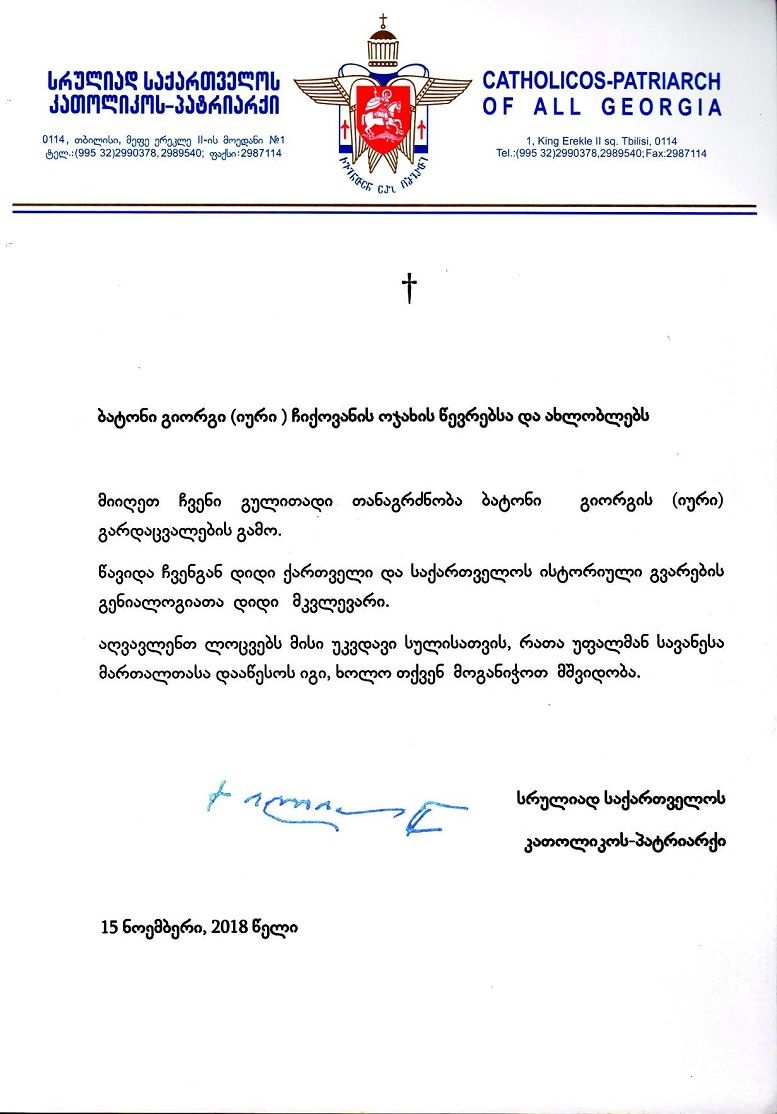 სრულიად საქართველოს
კათოლიკოს-პატრიარქი
0114, თბილისი, მეფე ერეკლე II-ის მოედანი №1
ტელ.:(995 32)2990378,2989540; ფაქსი:2987114
CATHOLICOS-PATRIARCH
OF ALL GEORGIA
1, King Erekle II sq. Tbilisi, 0114
Tel.:(995 32)2990378,2989540;Fax:2987114
ბატონი გიორგი (იური ) ჩიქოვანის ოჯახის წევრებსა და ახლობლებს
მიიღეთ ჩვენი გულითადი თანაგრძნობა ბატონი გიორგის (იური)
გარდაცვალების გამო.
წავიდა ჩვენგან დიდი ქართველი და საქართველოს ისტორიული გვარების
გენიალოგიათა დიდი მკვლევარი.
აღვავლენთ ლოცვებს მისი უკვდავი სულისათვის, რათა უფალმან სავანესა
მართალთასა დააწესოს იგი, ხოლო თქვენ მოგანიჭოთ მშვიდობა.
სრულიად საქართველოს
კათოლიკოს-პატრიარქი
15 ნოემბერი, 2018 წელი